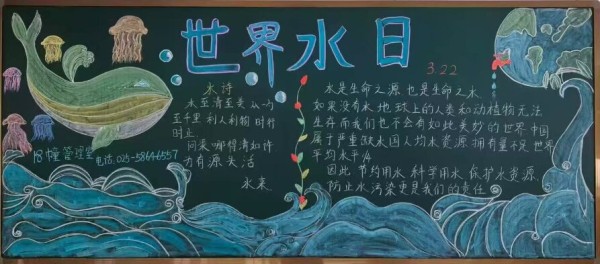 世界水日
3.22
水诗
水至清至美 从一勺
至千里 利人利物 时行
时止
问渠哪得清如许
为有源头活
水来
18幢管理室 电话:025-58646557
水是生命之源 也是生命之水
如果没有水 地球上的人类和动植物无法
生存 而我们也不会有如此美妙的世界 中国
属于严重缺水国 人均水资源 拥有量不足 世界
平均水平1/4
因此 节约用水 科学用水 保护水资源
防止水污染更是我们的责任